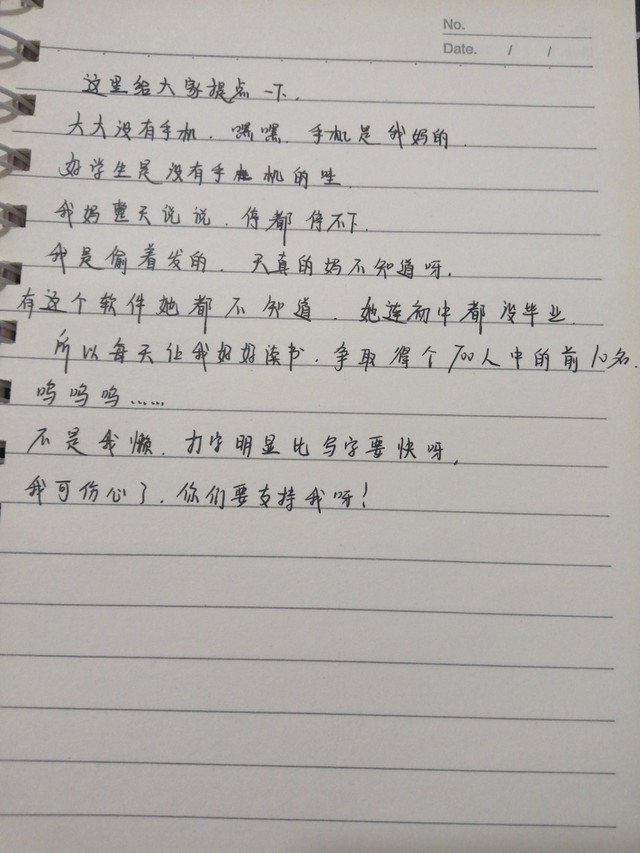 No.
Date. / /
这里给大家提点一下.
大大没有手机. 嘿嘿. 手机是我妈的.
好学生是没有手机的哇
我妈整天说说. 停都停不下.
我是偷着发的. 天真的妈不知道呀.
有这个软件她都不知道. 她连初中都没毕业.
所以每天让我好好读书. 争取得个700人中的前10名.
呜呜呜……
不是我懒. 打字明显比写字要快呀.
我可伤心了. 你们要支持我呀!